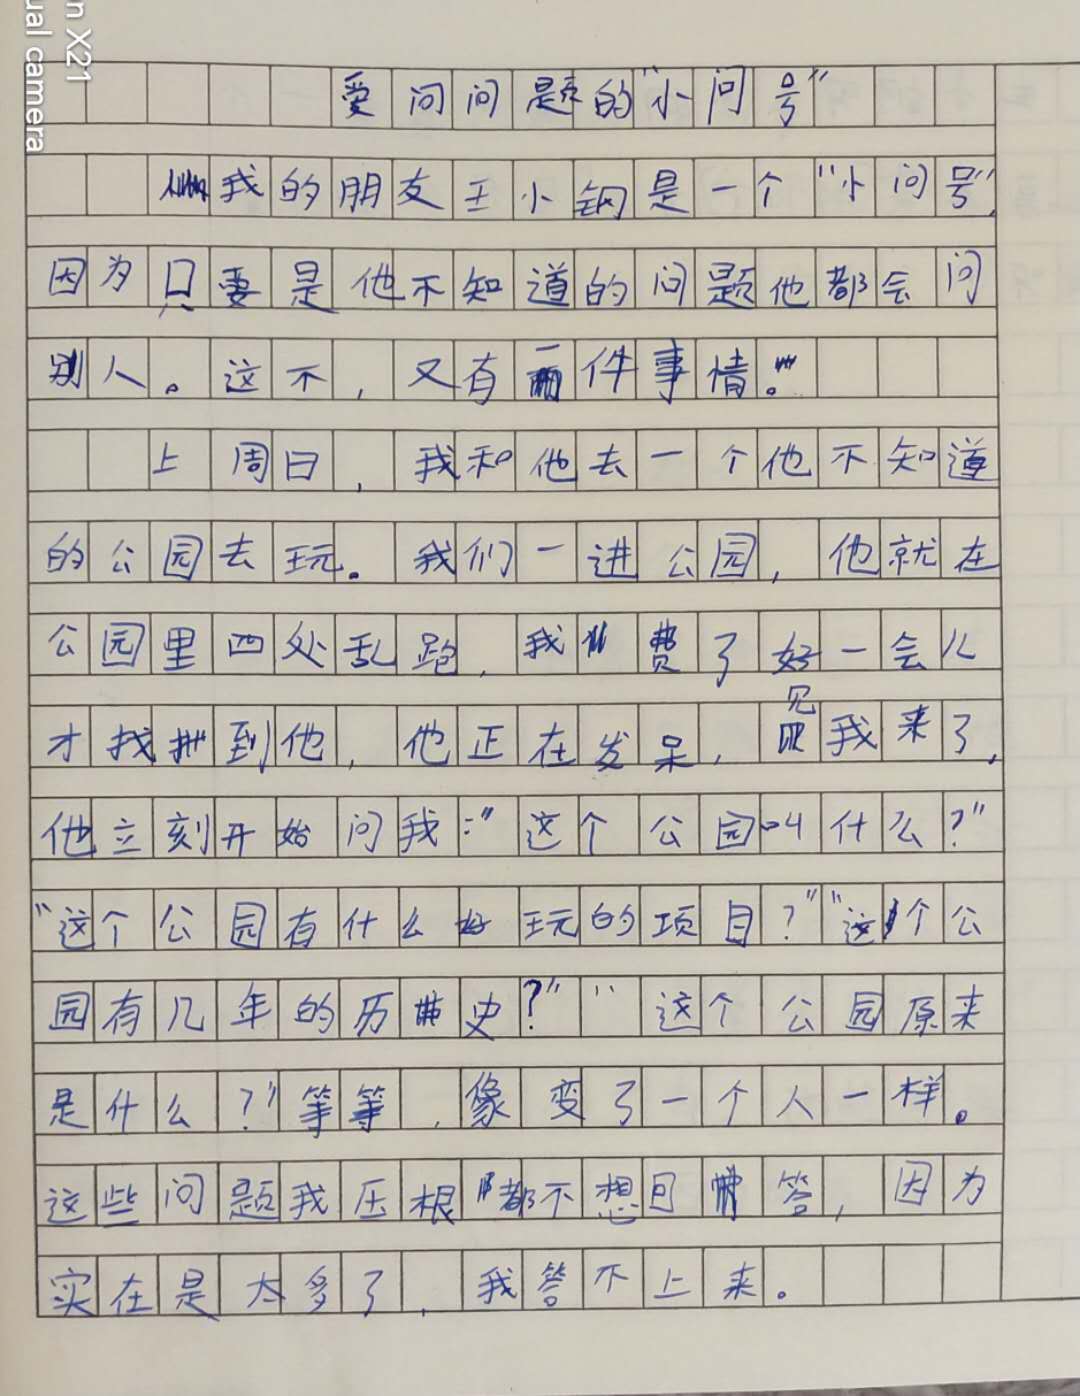 n X21
ual camera
爱问问题的“小问号”
我的朋友王小钢是一个“小问号”,
因为只要是他不知道的问题他都会问
别人。这不,又有一件事情。
上周日,我和他去一个他不知道
的公园去玩。我们一进公园,他就在
公园里四处乱跑,我费了好一会儿
才找到他,他正在发呆,见我来了,
他立刻开始问我:“这个公园叫什么?”
“这个公园有什么好玩的项目?”“这个公
园有几年的历史?”“这个公园原来
是什么?”等等,像变了一个人一样。
这些问题我压根都不想回答,因为
实在是太多了,我答不上来。